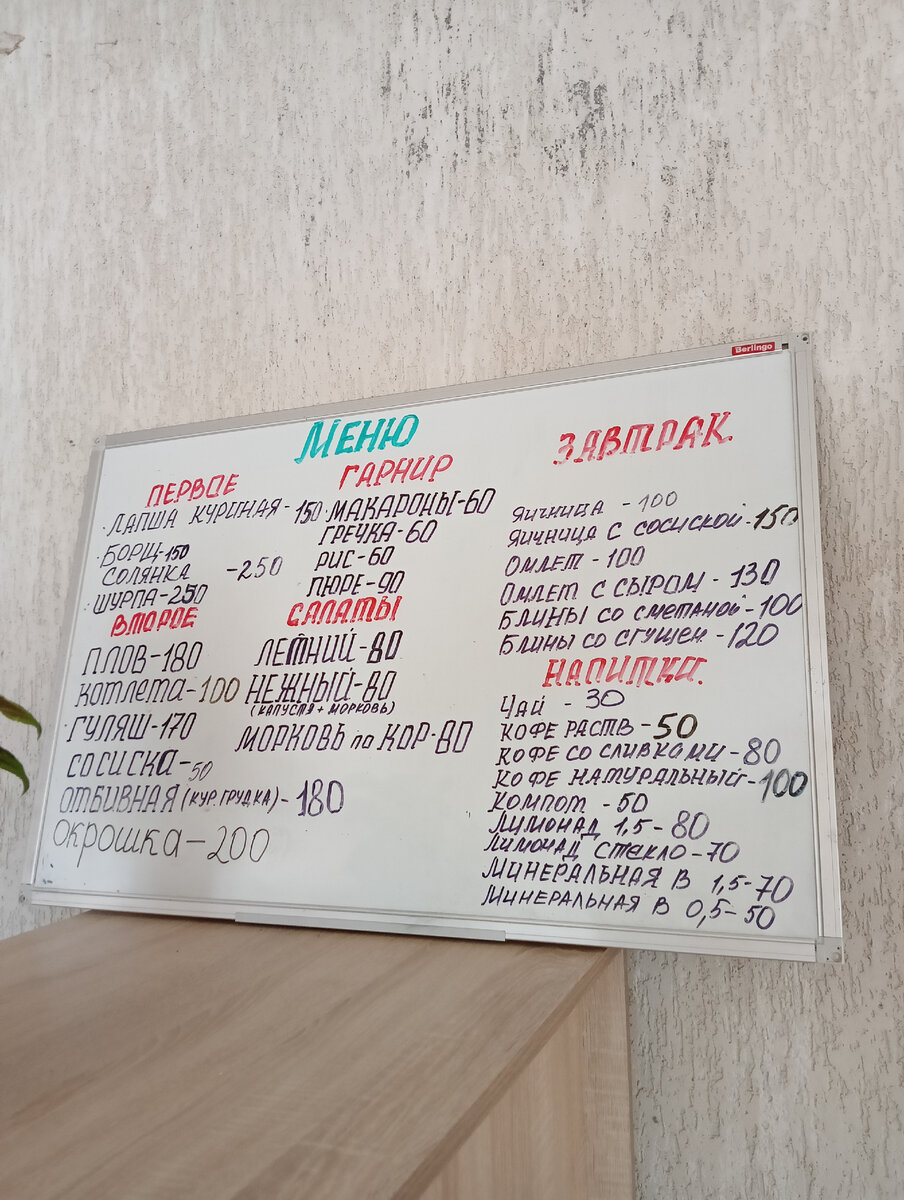 Berlingo
МЕНЮ
ПЕРВОЕ
ЛАПША КУРИНАЯ - 150
БОРЩ - 150
СОЛЯНКА - 250
ШУРПА - 250
ВТОРОЕ
ПЛОВ - 180
КОТЛЕТА - 100
ГУЛЯШ - 170
СОСИСКА - 50
ОТБИВНАЯ (КУР. ГРУДКА) - 180
ОКРОШКА - 200
ГАРНИР
МАКАРОНЫ - 60
ГРЕЧКА - 60
РИС - 60
ПЮРЕ - 90
САЛАТЫ
ЛЕТНИЙ - 80
НЕЖНЫЙ - 80
(КАПУСТА + МОРКОВЬ)
МОРКОВЬ по КОР - 80
ЗАВТРАК
ЯИЧНИЦА - 100
ЯИЧНИЦА С СОСИСКОЙ - 150
ОМЛЕТ - 100
ОМЛЕТ С СЫРОМ - 130
БЛИНЫ СО СМЕТАНОЙ - 100
БЛИНЫ СО СГУЩЕН - 120
НАПИТКИ
ЧАЙ - 30
КОФЕ РАСТВ - 50
КОФЕ СО СЛИВКАМИ - 80
КОФЕ НАТУРАЛЬНЫЙ - 100
КОМПОТ - 50
ЛИМОНАД 1,5 - 80
ЛИМОНАД СТЕКЛО - 70
МИНЕРАЛЬНАЯ В 1,5 - 70
МИНЕРАЛЬНАЯ В 0,5 - 50